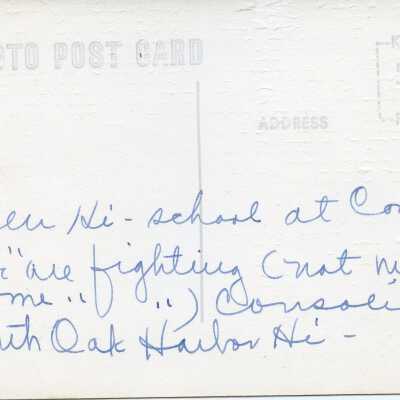 OTO POST CARD
ADDRESS
een Hi-school at Co
" are fighting (not m
ome " ") Consoli
ith Oak Harbor Hi -